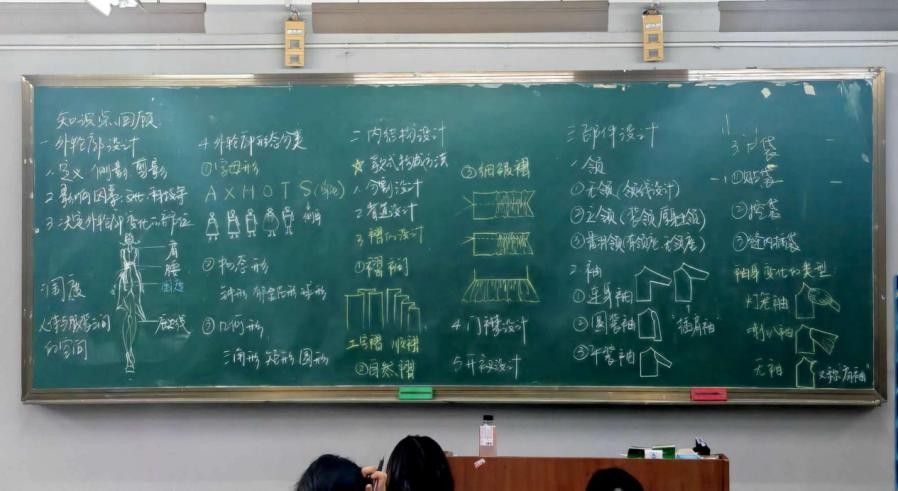 知识点回顾
一 外轮廓设计
1. 定义 侧影 剪影
2 影响因素:文化 科技等
3. 决定外轮廓变化的部位
肩
腰
围度
底边线
人体与服装之间
的空间
4 外轮廓形态分类
①字母形
A X H O T S
② 物态形
③几何形
三角形 矩形 圆形
二 内结构设计
1. 分割设计
2 省道设计
3 褶的设计
①褶裥
工字褶 顺褶
②自然褶
③细皱褶
4. 门襟设计
5 开衩设计
三 部件设计
1. 领
①无领(领线设计)
②立领
③翻领
2 袖
①连身袖
②圆装袖 "插肩袖"
③平装袖
3. 口袋
①贴袋
②挖袋
③缝内插袋
袖身变化的类型:
灯笼袖
喇叭袖
无袖 又称"肩袖"